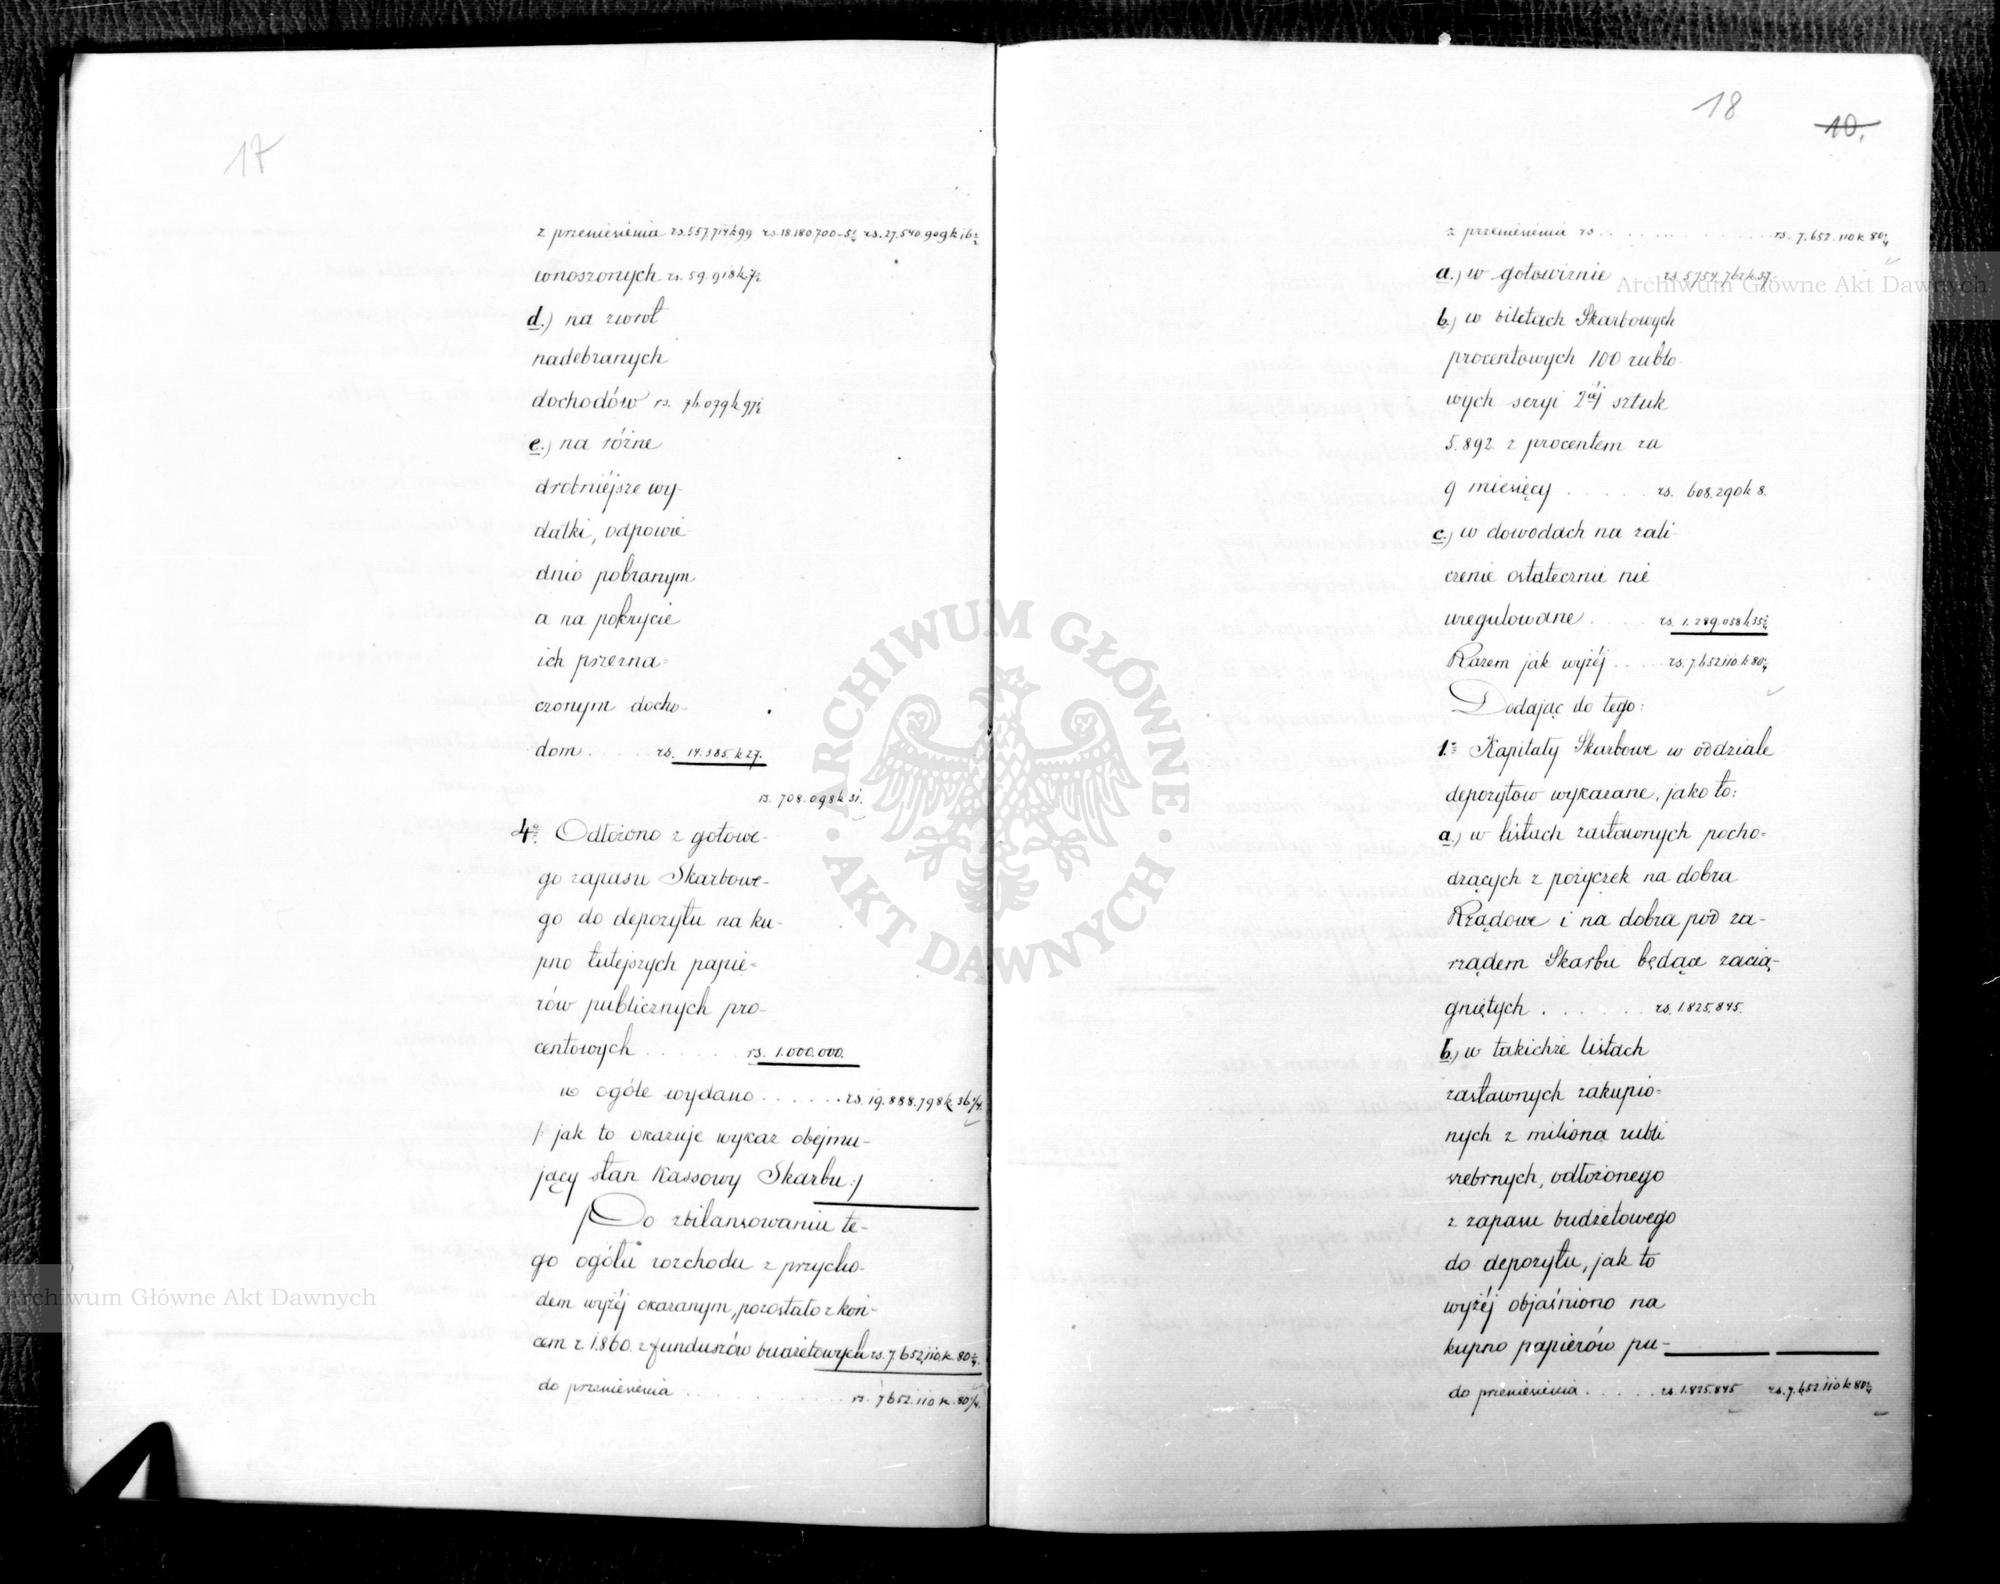 17
z przeniesienia rs. 557,714 k 99 rs. 18.180.700 – 5½ rs. 27.540.909 k 16½
wnoszonych rs. 59.918 k 7½
d.) na zwrot
nadebranych
dochodów rs. 76.079 k 97½
e.) na różne
drobniéjsze wy-
datki, odpowie-
dnio pobranym
a na pokrycie
ich przezna-
czonym docho-
dom . . . . . rs. 14.385. k 27.
rs. 708.098 k 31.
4o Odłożono z gotowe-
go zapasu Skarbowe-
go do depozytu na ku-
pno tutejszych papie-
rów publicznych pro-
centowych . . . . . . . rs. 1.000.000.
w ogóle wydano . . . . . . rs. 19.888.798 k 36¼.
/: jak to okazuje wykaz obejmu-
jący stan Kassowy Skarbu :/
Do zbilansowaniu te-
go ogółu rozchodu z przycho-
dem wyżéj okazanym, pozostało z koń-
cem r. 1860. z funduszów budżetowych rs. 7.652,110. k. 80¼.
do przeniesienia . . . . . . . . . . . rs. 7652.110 k. 80¼.
18
10.
z przeniesienia rs . . . . . . . . . . . . rs. 7.652.110 k 80¼
a.) w gotowiznie rs. 5754,762 k 37.
b.) w biletach Skarbowych
procentowych 100 rublo-
wych seryi 2éj sztuk
5.892 z procentem za
9 miesięcy . . . . . rs. 608.290 k 8.
c.) w dowodach na zali-
czenie ostatecznie nie
uregulowane . . . . rs. 1.289.058 k 35¼
Razem jak wyżéj . . . . rs. 7.652.110. k 80¼
Dodając do tego:
1o Kapitały Skarbowe w oddziale
depozytów wykazane, jako to:
a.) w listach zastawnych pocho-
dzących z pożyczek na dobra
Rządowe i na dobra pod za-
rządem Skarbu będące zacią-
gniętych . . . . . rs. 1.825.845.
b.) w takichże listach
zastawnych zakupio-
nych z miliona rubli
srebrnych, odłożonego
z zapasu budżetowego
do depozytu, jak to
wyżéj objaśniono na
kupno papierów pu-
do przeniesienia . . . . . rs. 1.825.845 rs. 7.652.110 k 80¼
Archiwum Główne Akt Dawnych
Archiwum Główne Akt Dawnych
ARCHIWUM GŁÓWNE · AKT DAWNYCH ·